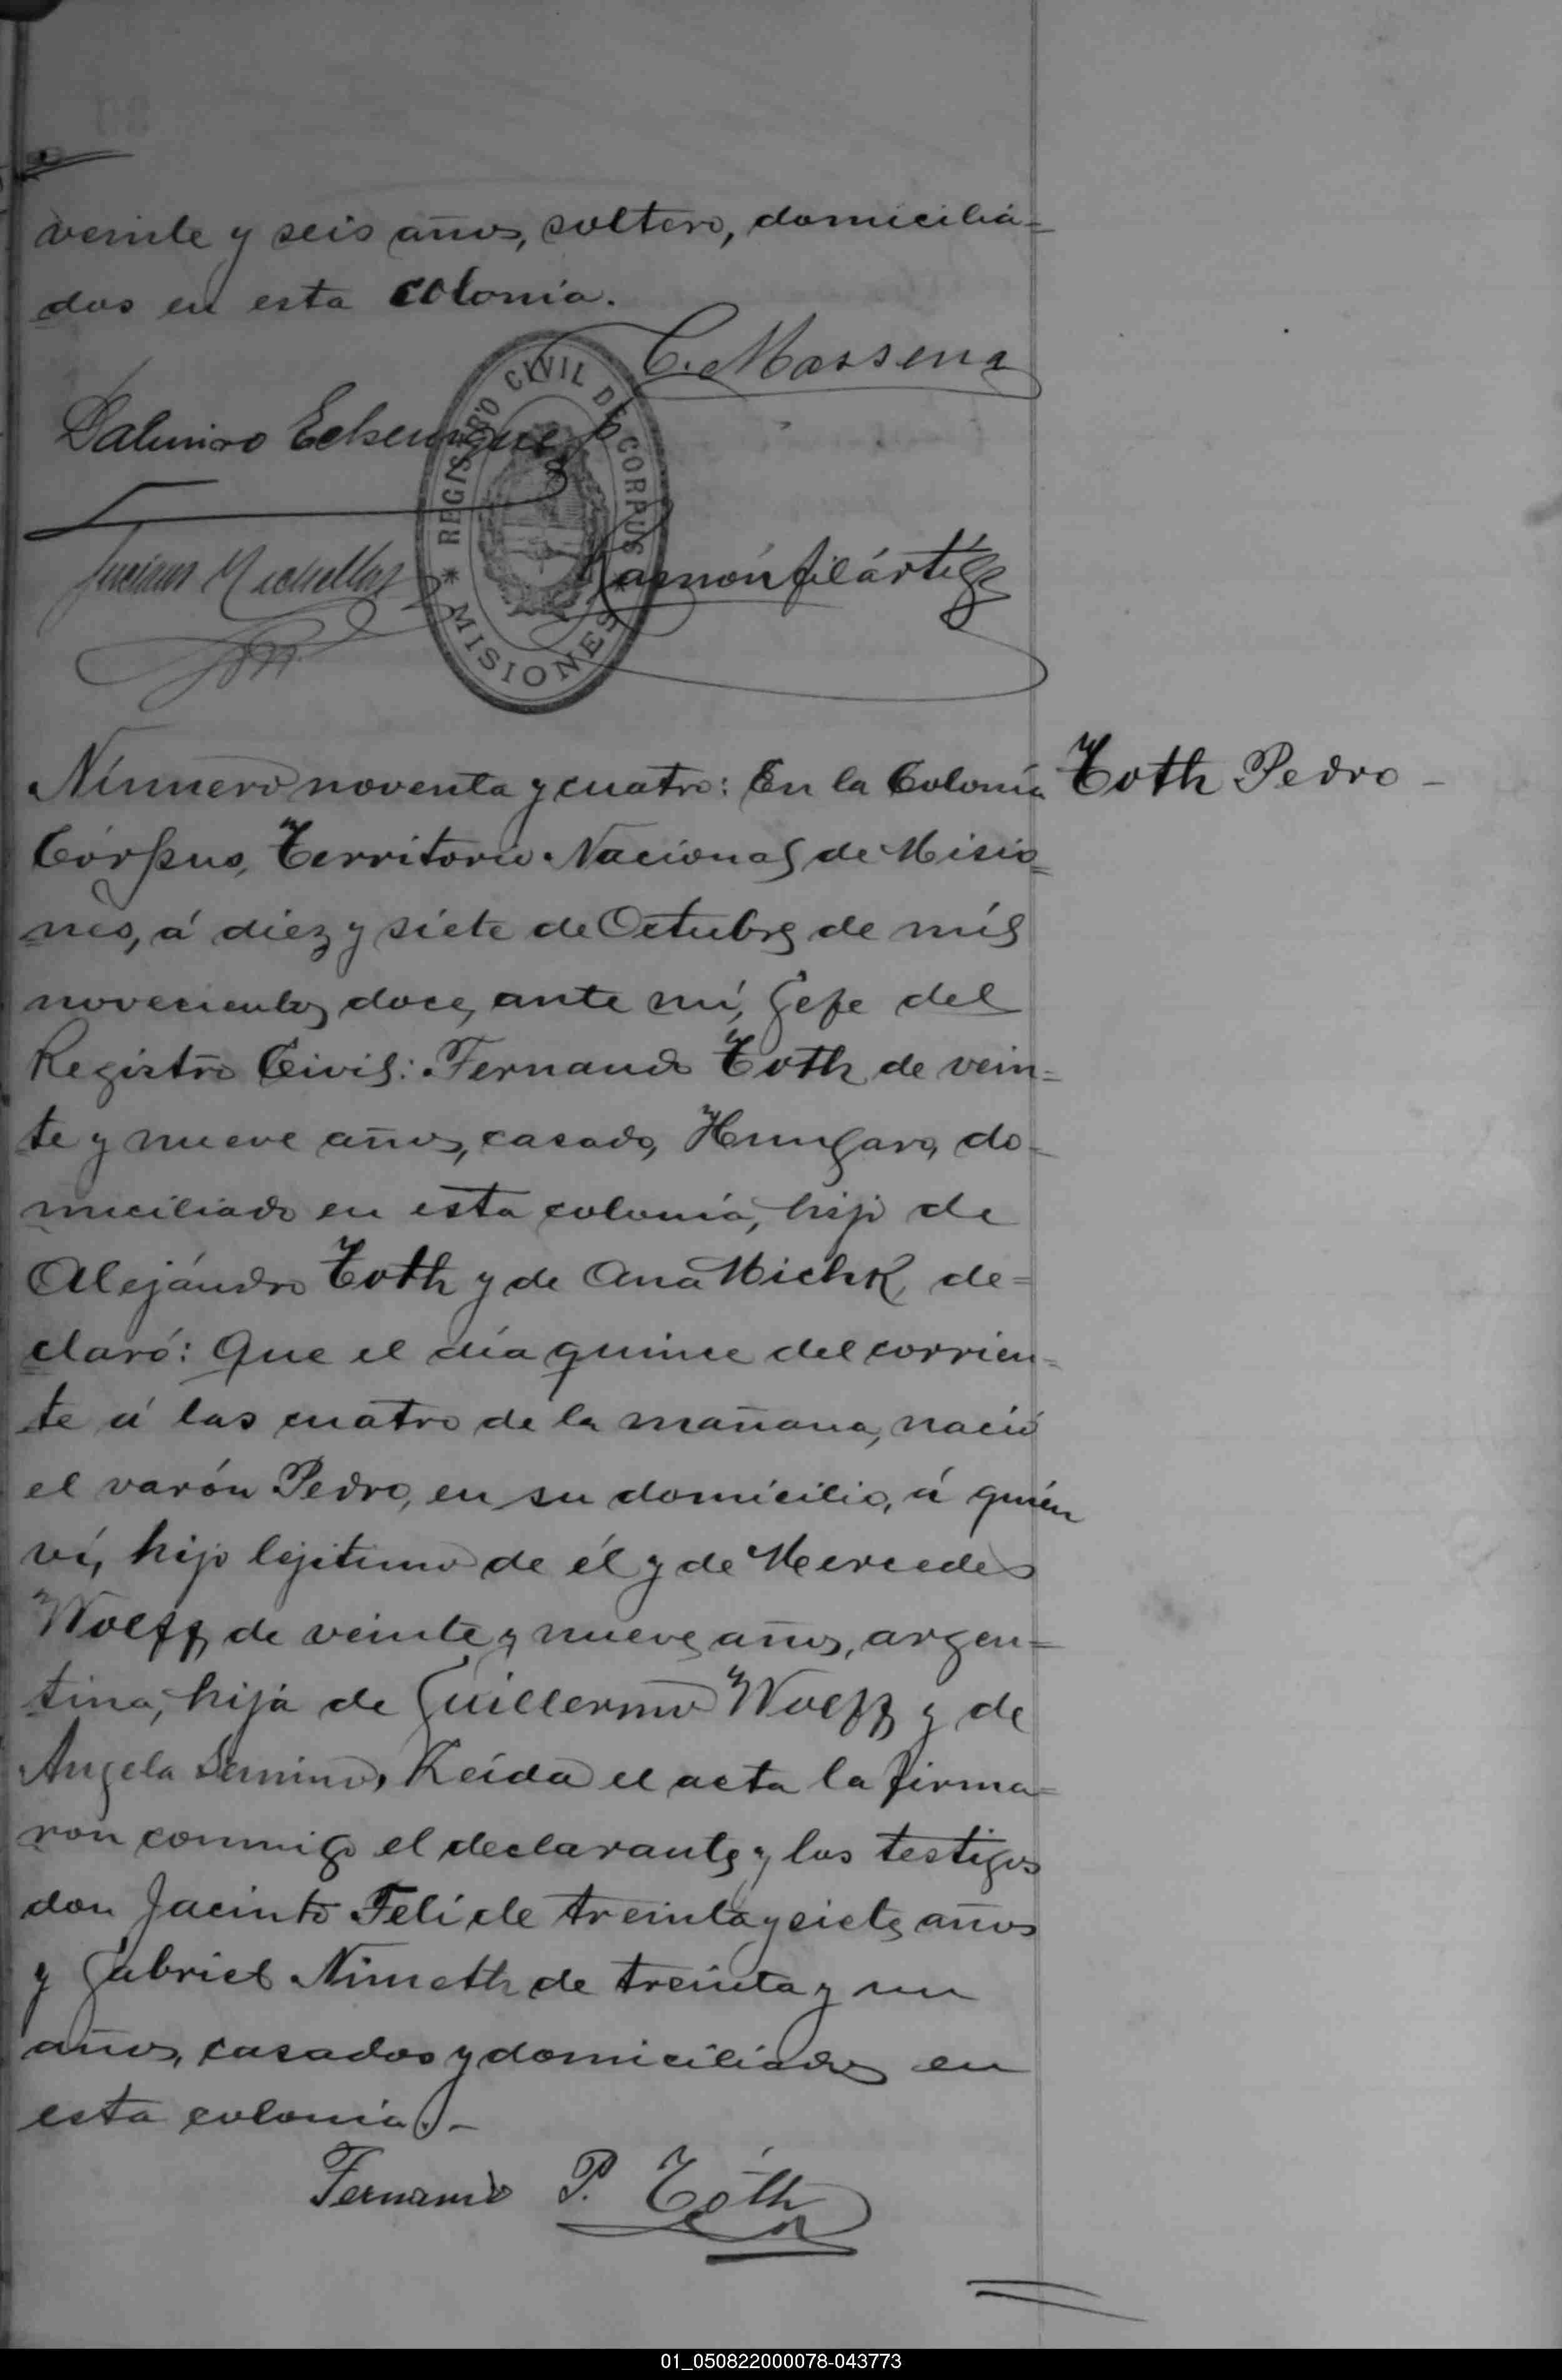 veinte y seis años, soltero, domicilia=
dos en esta colonia.
C. Massena
Dalmiro Echenique
REGISTRO CIVIL DE CORPUS
* MISIONES *
Ramón filártiga
Número noventa y cuatro: En la Colonia
Toth Pedro -
Córpus, Territorio Nacional de Misio=
nes, á diez y siete de Octubre de mil
novecientos doce, ante mí, Gefe del
Registro Civil: Fernando Toth, de vein=
te y nueve años, casado, Hungaro, do=
miciliado en esta colonia, hijo de
Alejándro Toth y de Ana Michk, de=
claró: Que el día quince del corrien=
te á las cuatro de la mañana, nació
el varón Pedro, en su domicilio, á quién
ví, hijo lejitimo de él y de Mercedes
Wolff, de veinte y nueve años, argen=
tina, hija de Guillermo Wolff y de
Angela Leída el acta la firma=
ron conmigo el declarante y los testigos
don Jacinto Feli de treinta y siete años
y Gabriel Nimeth de treinta y un
años, casados y domiciliados en
esta colonia.-
Fernando P. Tóth
01_050822000078-043773